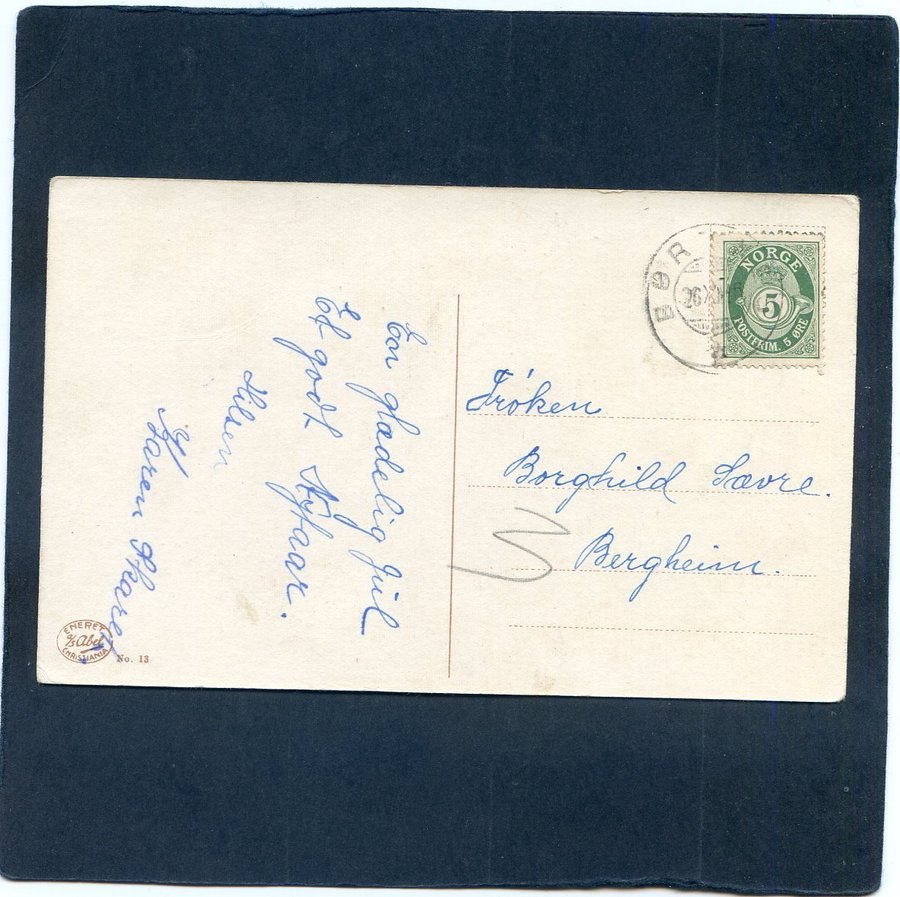 En glædelig Jul
Et godt Nyaar.
Hilsen
Karen
Frøken
Borghild Sævre.
Bergheim.
NORGE
5
POSTFRIM. 5 ØRE
BØR
26
ENERET
A/S Abel
CHRISTIANIA
No. 13